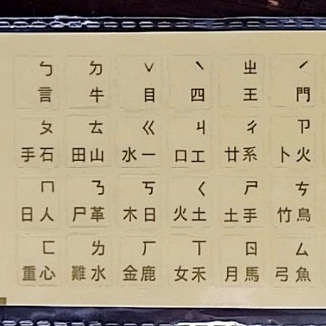 ㄅ ㄉ ˇ ˋ ㄓ ˊ
言 牛 目 四 王 門
ㄆ ㄊ ㄍ ㄐ ㄔ ㄗ
手石 田山 水一 口工 廿系 卜火
ㄇ ㄋ ㄎ ㄑ ㄕ ㄘ
日人 尸革 木日 火土 土手 竹鳥
ㄈ ㄌ ㄏ ㄒ ㄖ ㄙ
重心 難水 金鹿 女禾 月馬 弓魚